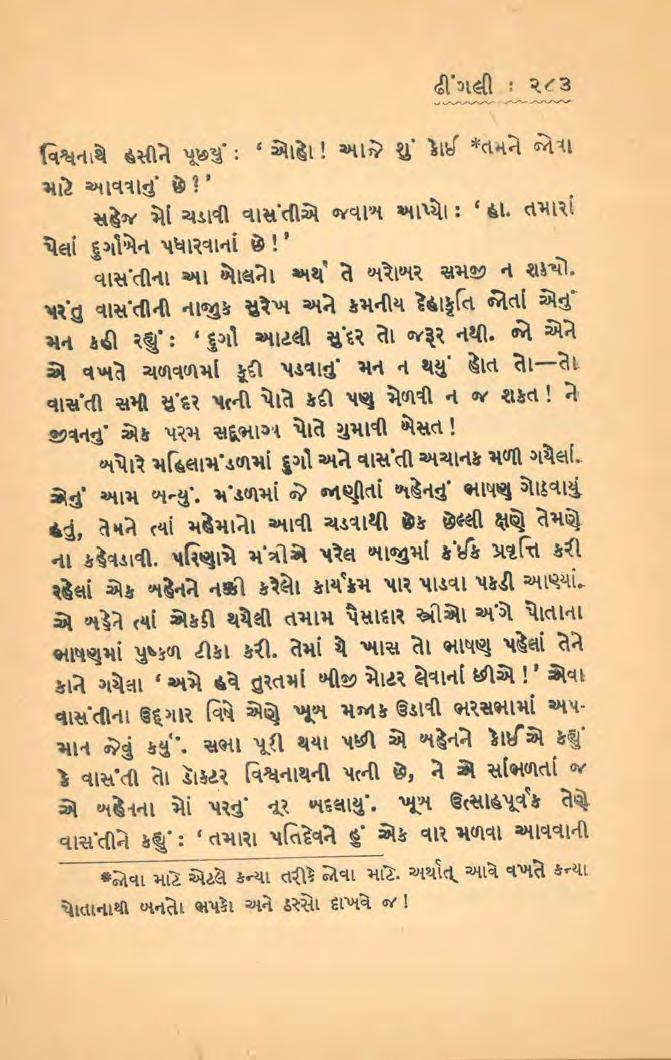 ઢીંગલી : ૨૮૩
વિશ્વનાથે હસીને પૂછ્યું : ‘ ઓહો! આજે શું કોઈ *તમને જોવા
માટે આવવાનું છે !’
સહેજ મોં ચડાવી વાસંતીએ જવાબ આપ્યો : ‘ હા. તમારાં
પેલાં દુર્ગાબેન પધારવાનાં છે !’
વાસંતીના આ બોલનો અર્થ તે બરોબર સમજી ન શક્યો.
પરંતુ વાસંતીની નાજુક સુરેખ અને કમનીય દેહાકૃતિ જોતાં એનું
મન કહી રહ્યું : ‘ દુર્ગા આટલી સુંદર તો જરૂર નથી. જો એને
એ વખતે ચળવળમાં કૂદી પડવાનું મન ન થયું હોત તો—તો
વાસંતી સમી સુંદર પત્ની પોતે કદી પણ મેળવી ન જ શકત ! ને
જીવનનું એક પરમ સદ્‌ભાગ્ય પોતે ગુમાવી બેસત !
બપોરે મહિલામંડળમાં દુર્ગા અને વાસંતી અચાનક મળી ગયેલાં.
એનું આમ બન્યું. મંડળમાં જે જાણીતાં બહેનનું ભાષણ ગોઠવાયું
હતું, તેમને ત્યાં મહેમાનો આવી ચડવાથી છેક છેલ્લી ક્ષણે તેમણે
ના કહેવડાવી. પરિણામે મંત્રીએ પરેલ બાજુમાં કંઈક પ્રવૃત્તિ કરી
રહેલાં એક બહેનને નક્કી કરેલો કાર્યક્રમ પાર પાડવા પકડી આણ્યાં.
એ બહેને ત્યાં એકઠી થયેલી તમામ પૈસાદાર સ્ત્રીઓ અંગે પોતાના
ભાષણમાં પુષ્કળ ટીકા કરી. તેમાં યે ખાસ તો ભાષણ પહેલાં તેને
કાને ગયેલા ‘ અમે હવે તુરતમાં બીજી મોટર લેવાનાં છીએ !’ એવા
વાસંતીના ઉદ્દગાર વિષે એણે ખૂબ મજાક ઉડાવી ભરસભામાં અપ-
માન જેવું કર્યું. સભા પૂરી થયા પછી એ બહેનને કોઈએ કહ્યું
કે વાસંતી તો ડૉક્ટર વિશ્વનાથની પત્ની છે, ને એ સાંભળતાં જ
એ બહેનના મોં પરનું નૂર બદલાયું. ખૂબ ઉત્સાહપૂર્વક તેણે
વાસંતીને કહ્યું : ‘ તમારા પતિદેવને હું એક વાર મળવા આવવાની
*જોવા માટે એટલે કન્યા તરીકે જોવા માટે. અર્થાત્ આવે વખતે કન્યા
પોતાનાથી બનતો ભપકો અને ઠસ્સો દાખવે જ !